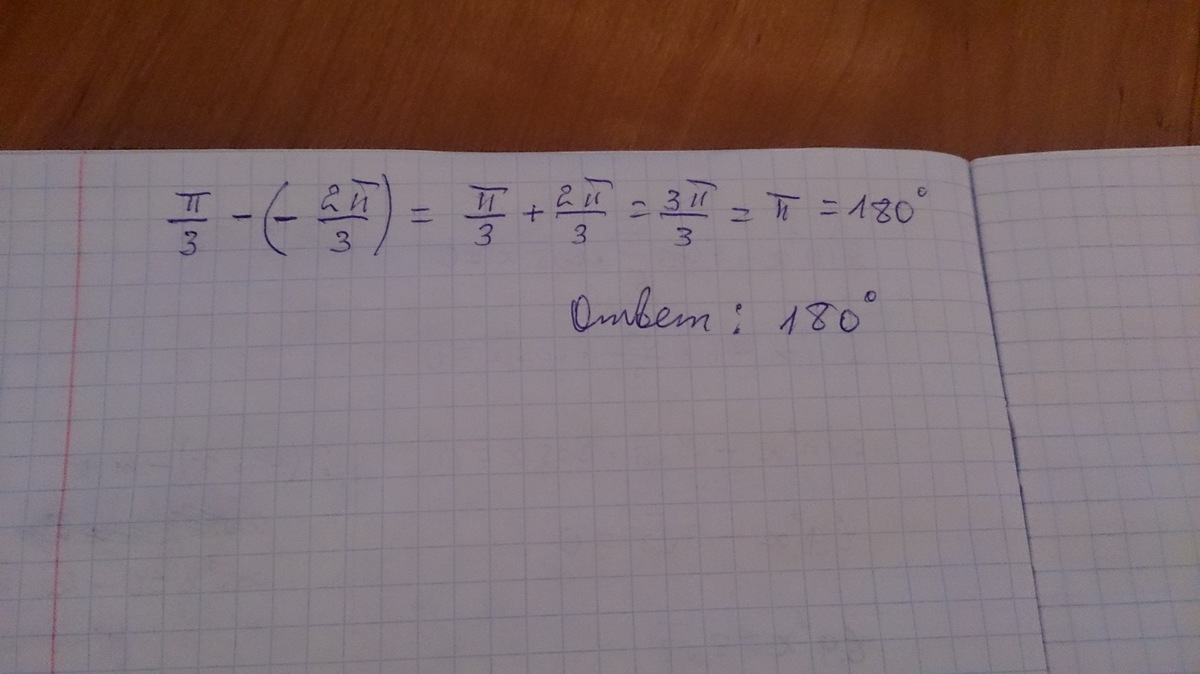 π/3 - (- 2π/3) = π/3 + 2π/3 = 3π/3 = π = 180°
Ответ: 180°